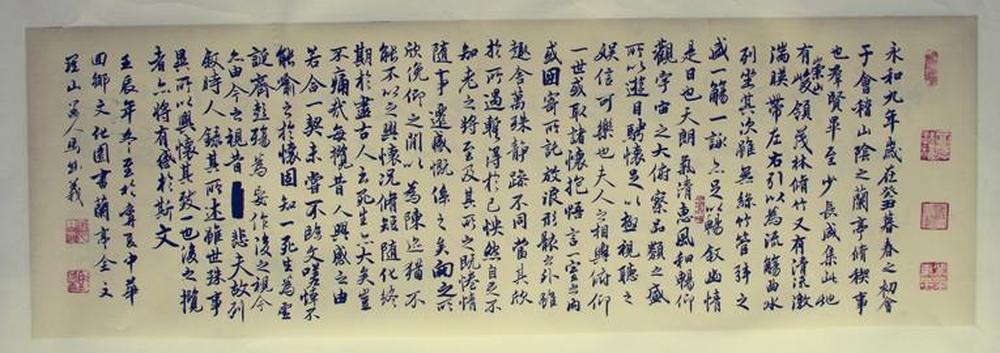 永和九年歲在癸丑暮春之初會
于會稽山陰之蘭亭脩稧事
也羣賢畢至少長咸集此地
有崇山峻領茂林脩竹又有清流激
湍暎帶左右引以為流觴曲水
列坐其次雖無絲竹管弦之
盛一觴一詠亦足以暢敘幽情
是日也天朗氣清惠風和暢仰
觀宇宙之大俯察品類之盛
所以遊目騁懷足以極視聽之
娛信可樂也夫人之相與俯仰
一世或取諸懷抱悟言一室之內
或因寄所託放浪形骸之外雖
趣舍萬殊靜躁不同當其欣
於所遇暫得於己怏然自足不
知老之將至及其所之既惓情
隨事遷感慨係之矣向之所
欣俛仰之間以為陳迹猶不
能不以之興懷況脩短隨化終
期於盡古人云死生亦大矣豈
不痛哉每攬昔人興感之由
若合一契未嘗不臨文嗟悼不
能喻之於懷固知一死生為虛
誕齊彭殤為妄作後之視今
亦由今之視昔悲夫故列
敘時人錄其所述雖世殊事
異所以興懷其致一也後之攬
者亦將有感於斯文
壬辰年冬至於中華
回鄉文化園書蘭亭全文
羅山